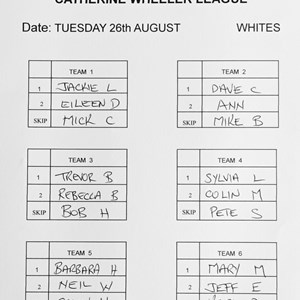 CATHERINE WHEELER LEAGUE
Date: TUESDAY 26th AUGUST WHITES
TEAM 1
1 JACKIE L
2 EILEEN D
SKIP MICK C
TEAM 2
1 DAVE C
2 ANN
SKIP MIKE B
TEAM 3
1 TREVOR B
2 REBECCA B
SKIP BOB H
TEAM 4
1 SYLVIA L
2 COLIN M
SKIP PETE S
TEAM 5
1 BARBARA H
2 NEIL W
TEAM 6
1 MARY M
2 JEFF E